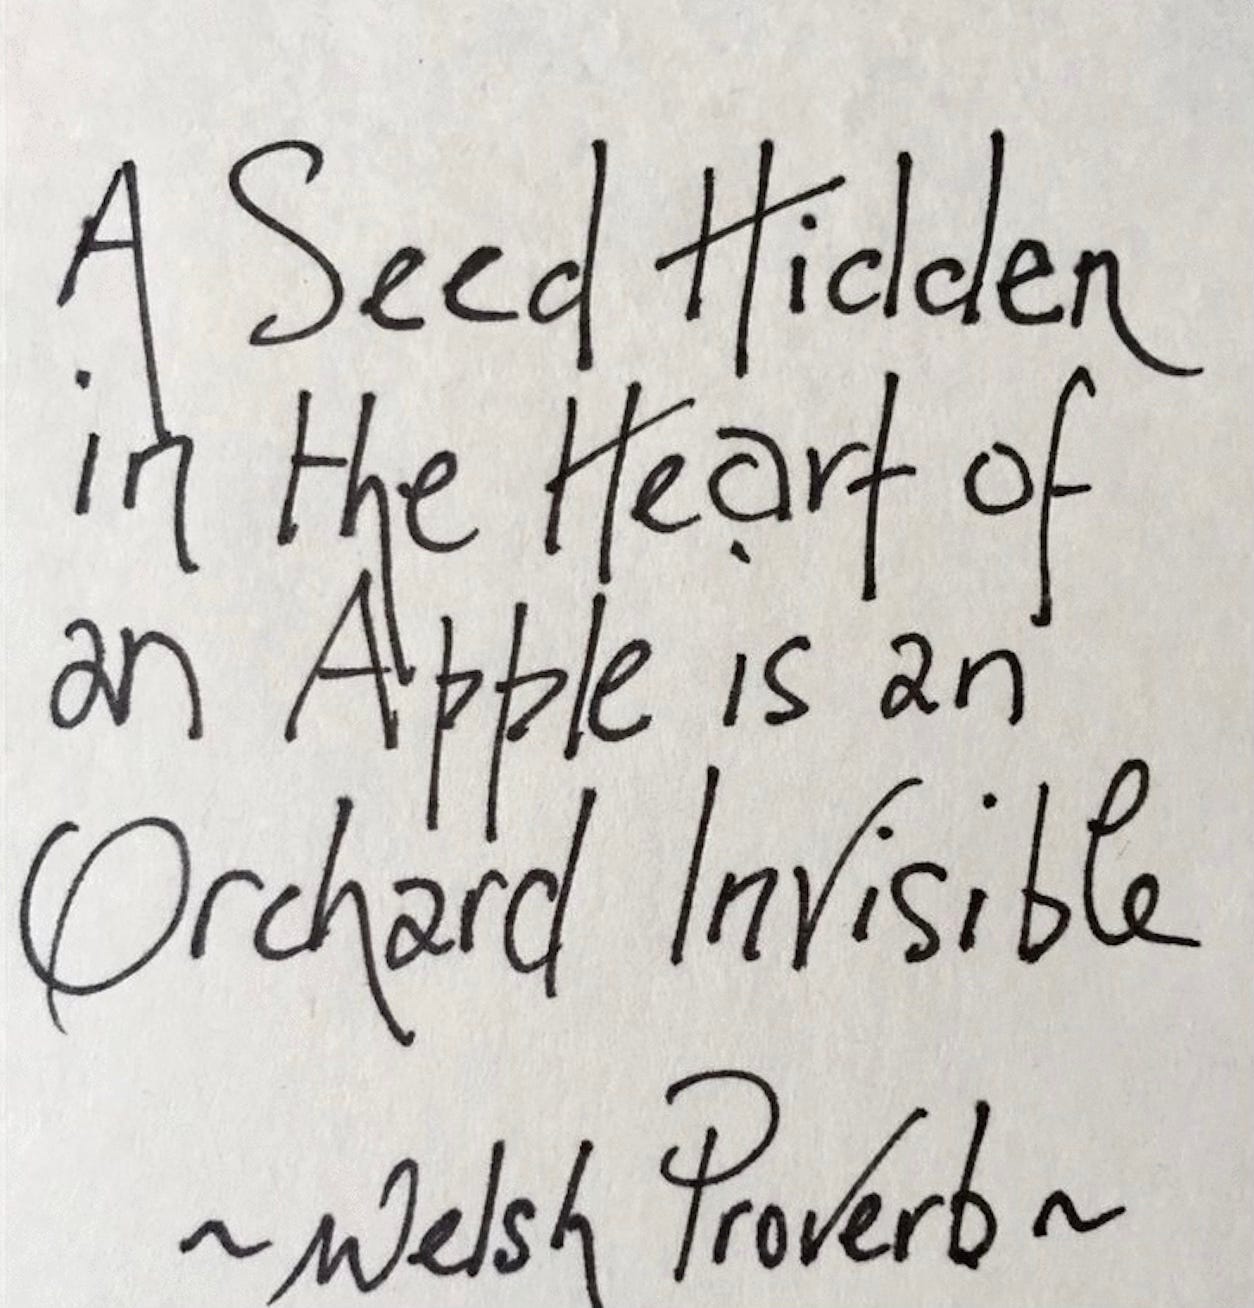 A Seed Hidden
in the Heart of
an Apple is an
Orchard Invisible
~Welsh Proverb~